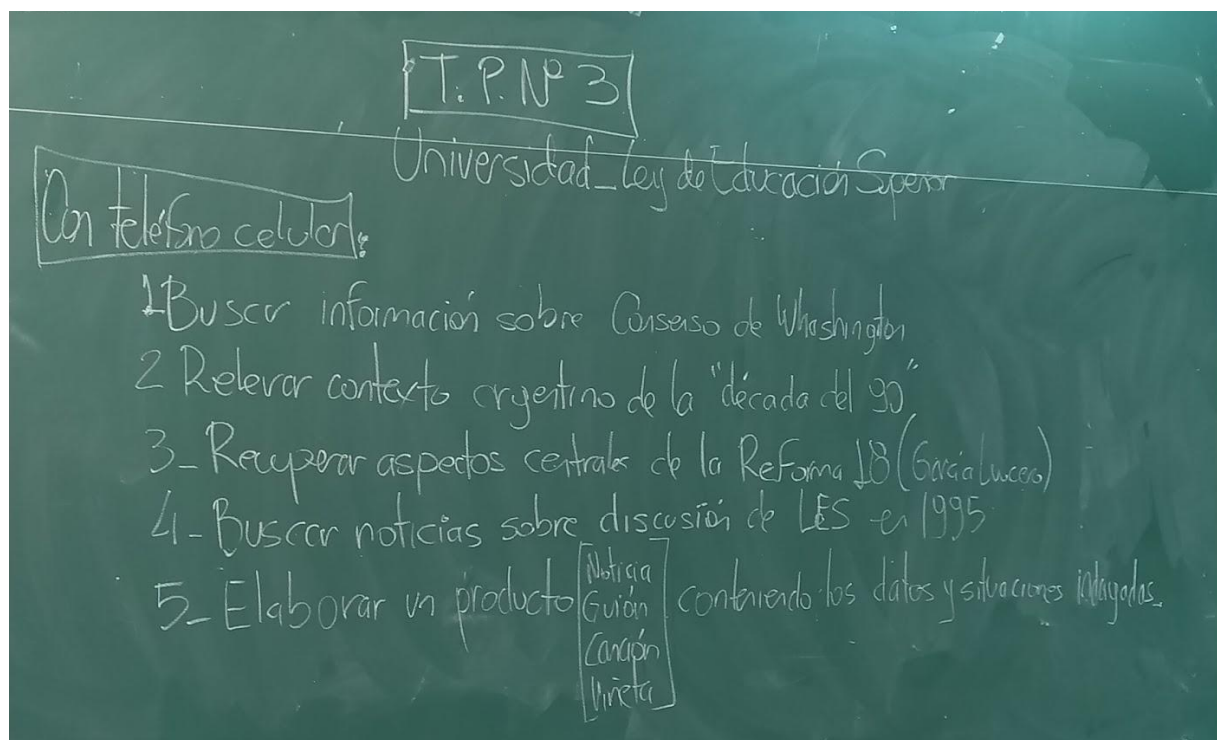 T.P.Nº 3
Universidad_Ley de Educación Superior
Con teléfono celular:
1-Buscar información sobre Consenso de Whashington
2 Relevar contexto argentino de la "década del 90"
3_ Recuperar aspectos centrales de la Reforma 18 (García Lucero)
4_ Buscar noticias sobre discusión de LES en 1995
5_ Elaborar un producto [Noticia Guión Canción Viñeta] conteniendo los datos y situaciones indagadas.